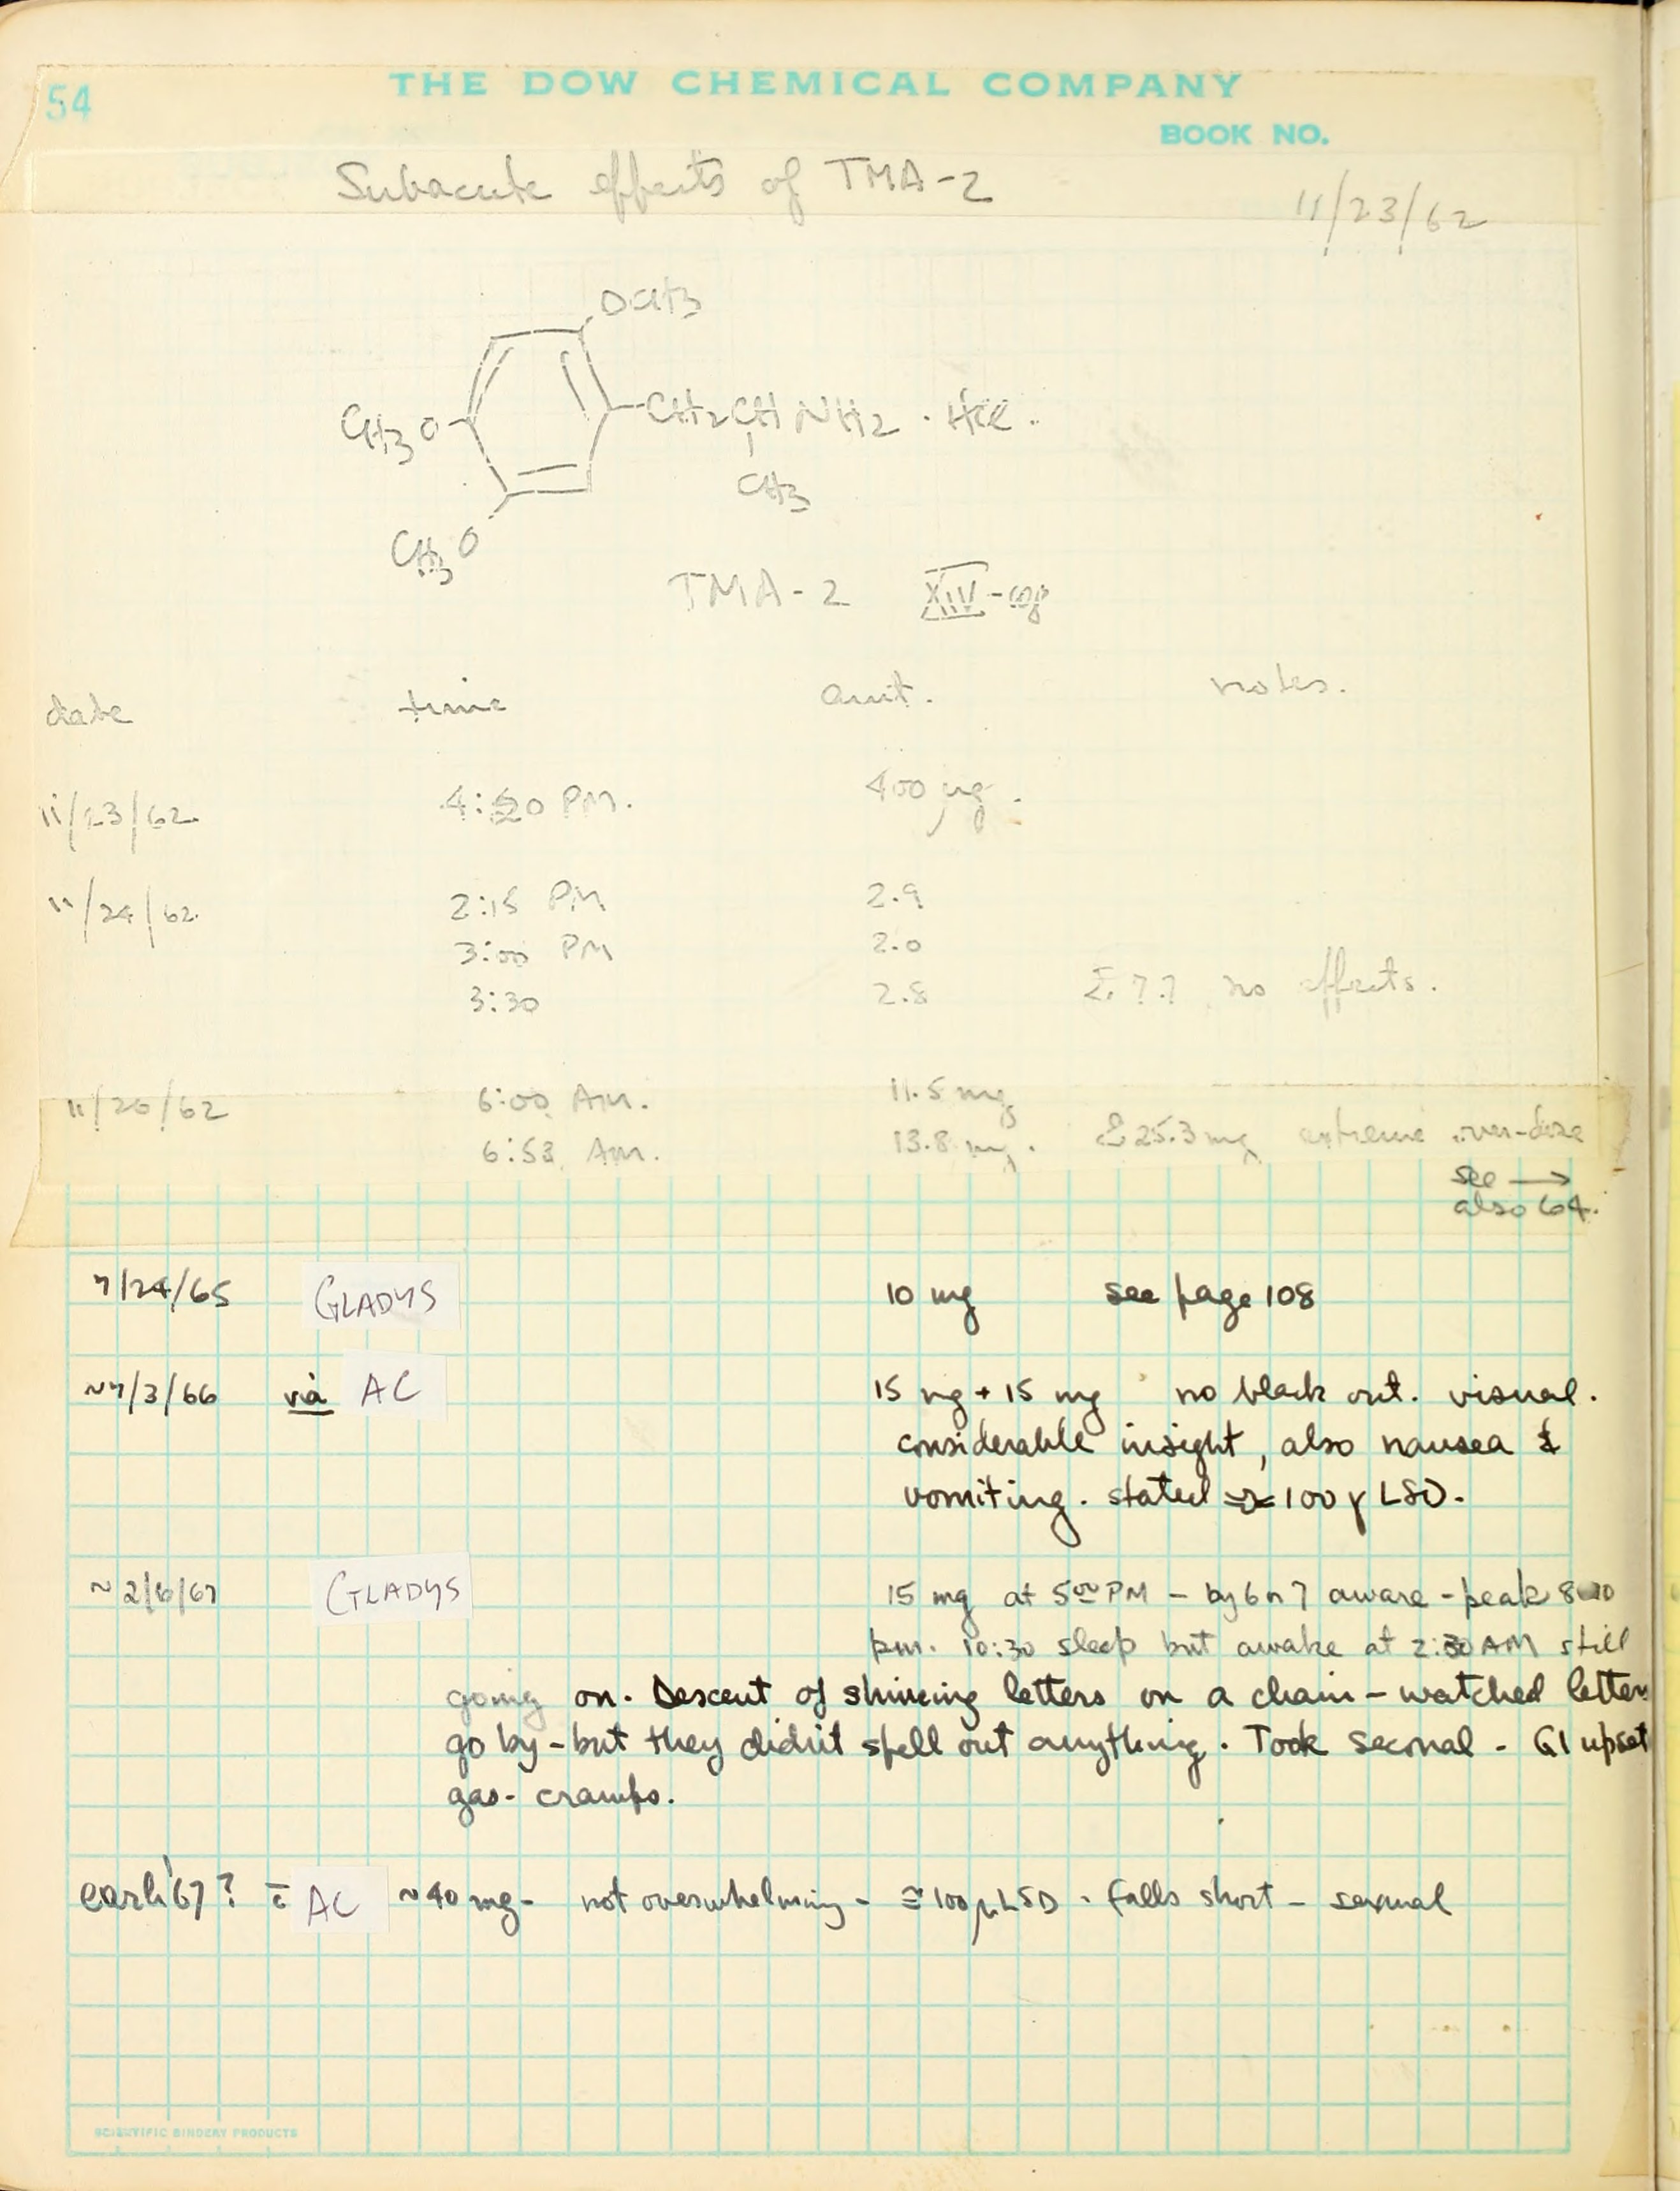 54
THE DOW CHEMICAL COMPANY
BOOK NO.
Subacute effects of TMA-2
11/23/62
OCH3
CH3O
CH2CHNH2 · HCl.
CH3
CH3O
TMA-2 XIV
date time amt. notes.
11/23/62 4:20 PM. 400 µg.
11/24/62 2:15 PM 2.9
3:00 PM 2.0
3:30 2.8 Σ 7.7 no effects.
11/26/62 6:00 AM. 11.5 mg
6:53 AM. 13.8 mg. Σ 25.3 mg extreme over-dose
see →
also 64.
7/24/65 GLADYS 10 mg see page 108
~7/3/66 via AC 15 mg + 15 mg no black out. visual.
considerable insight, also nausea &
vomiting. stated ≈ 100 γ LSD.
~2/6/67 GLADYS 15 mg at 5:00 PM - by 6 or 7 aware - peak 8-10
pm. 10:30 sleep but awake at 2:30 AM still
going on. Descent of shining letters on a chain - watched letters
go by - but they didn't spell out anything. Took seconal - GI upset
gas - cramps.
early '67? c̄ AC ~40 mg - not overwhelming - ≅ 100 µ LSD. falls short - sexual
SCIENTIFIC BINDERY PRODUCTS